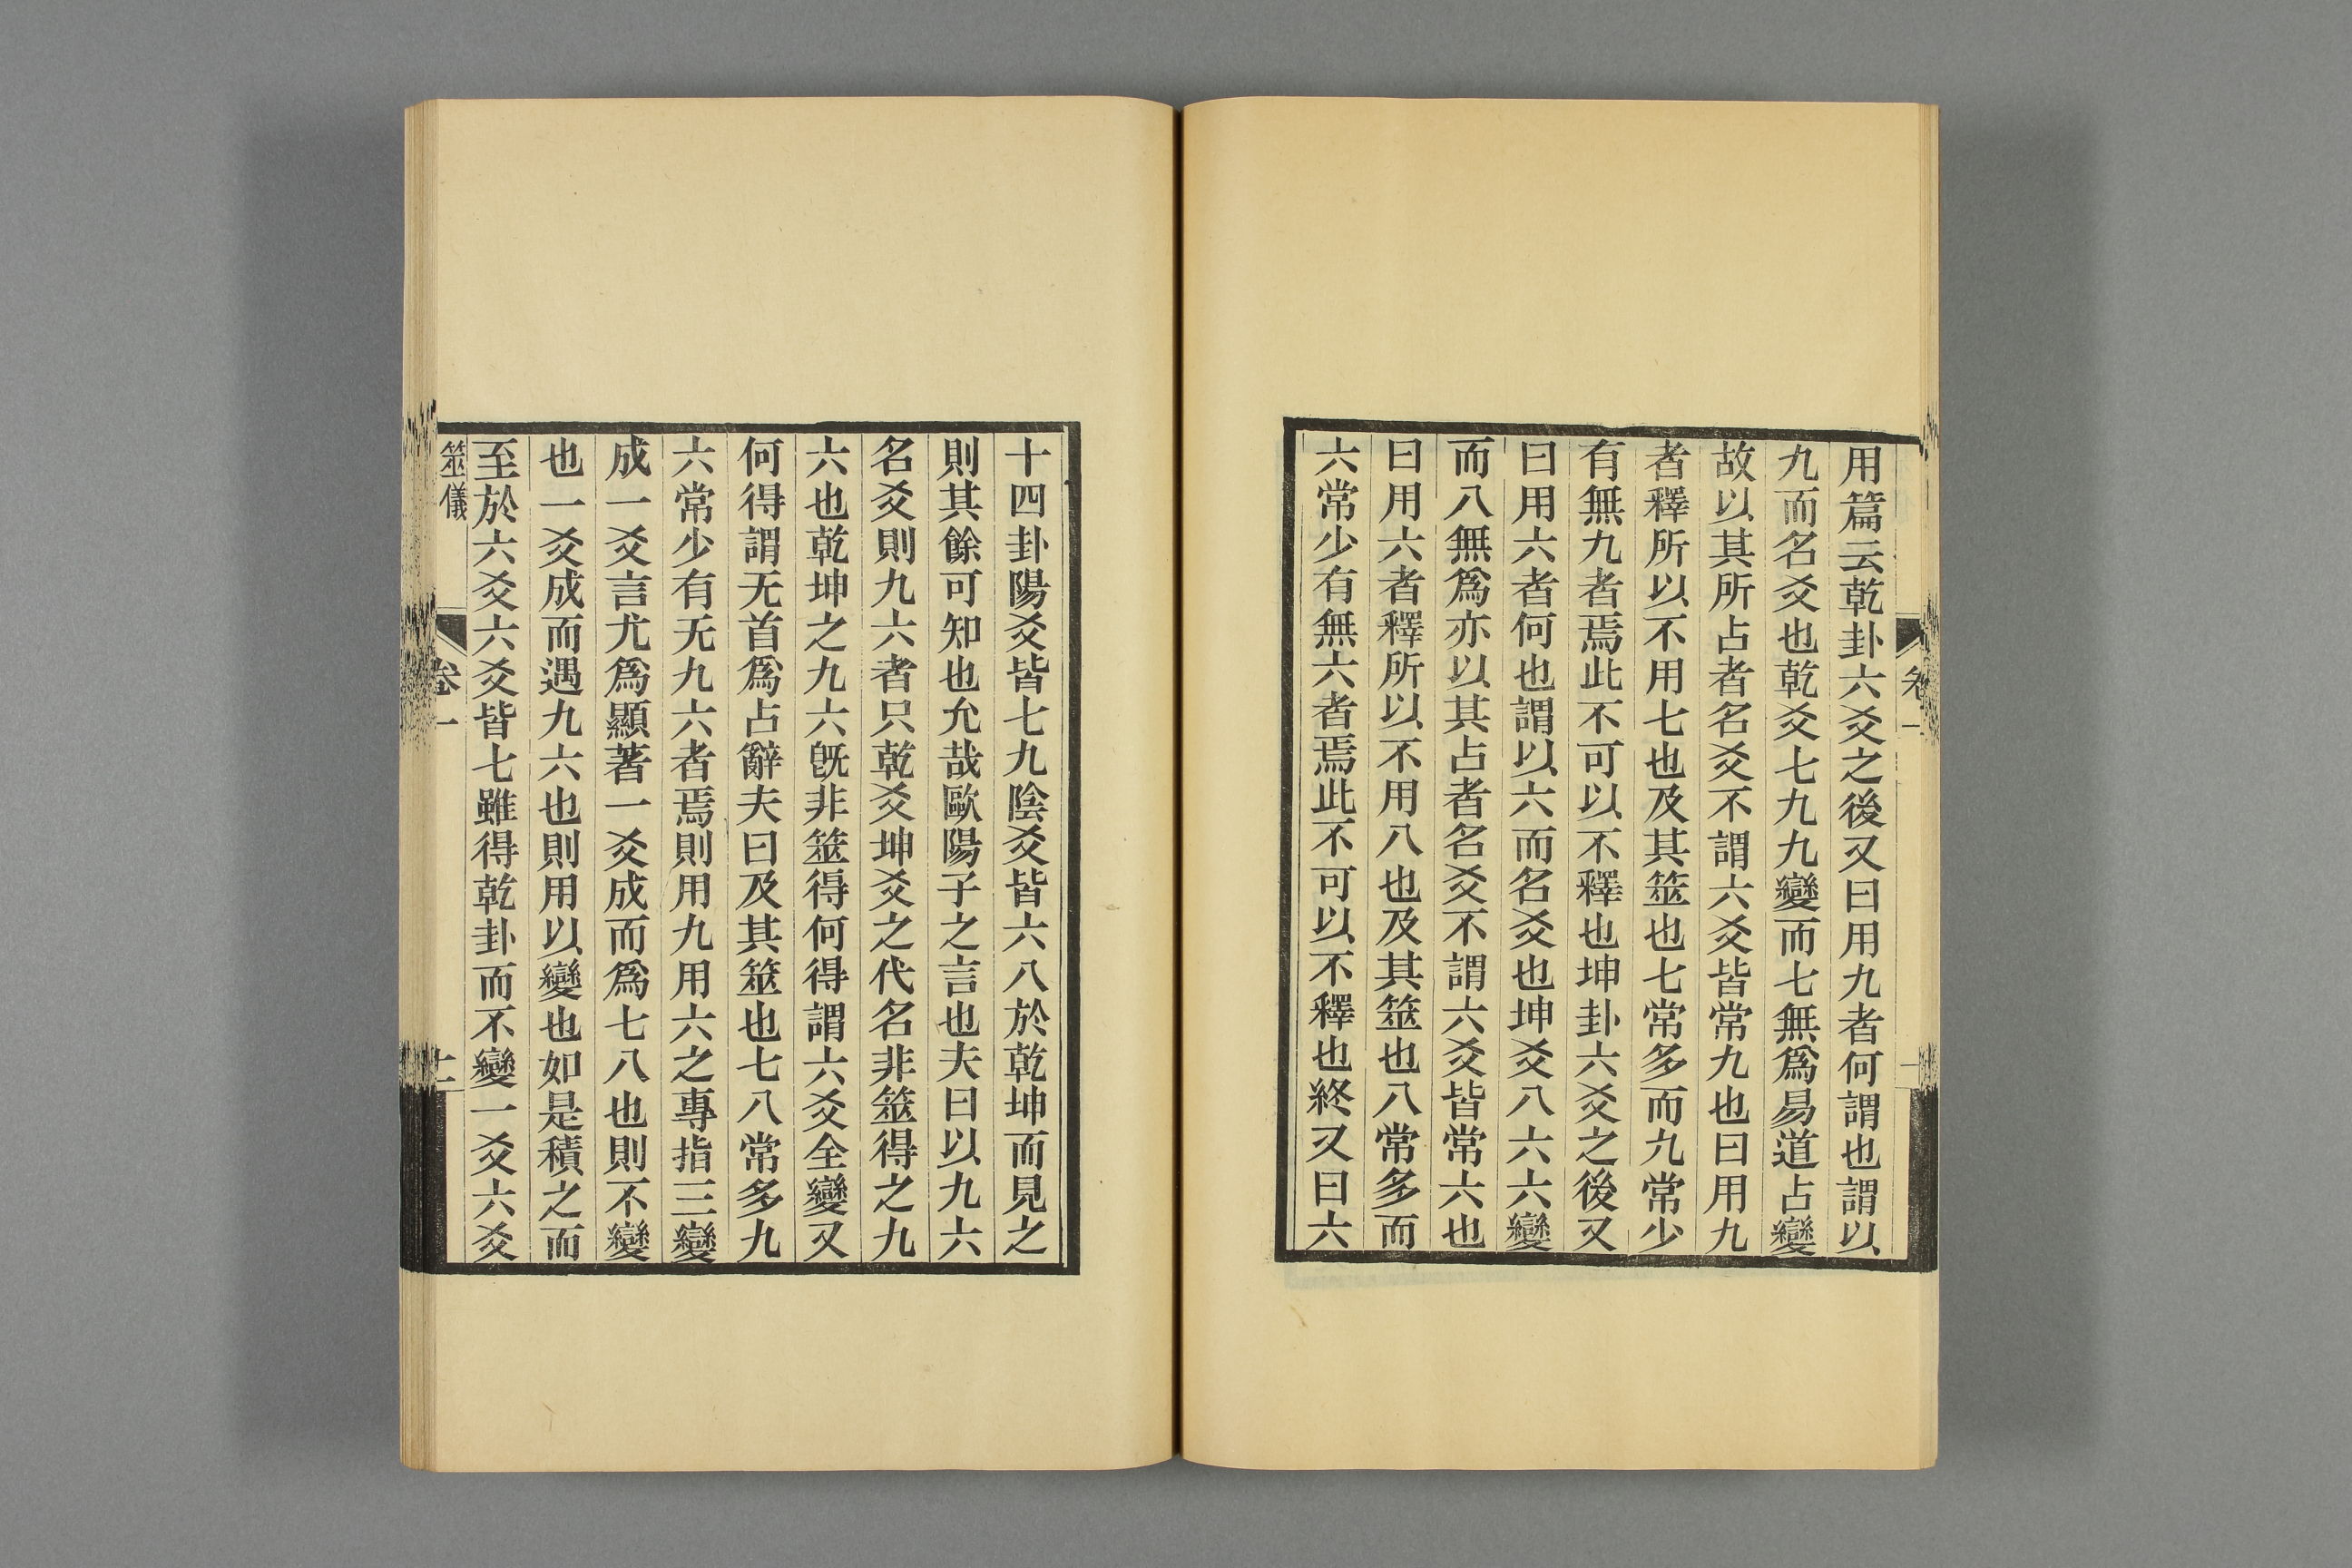 用篇云乾卦六爻之後又曰用九者何謂也謂以
九而名爻也乾爻七九九變而七無爲易道占變
故以其所占者名爻不謂六爻皆常九也曰用九
者釋所以不用七也及其筮也七常多而九常少
有無九者焉此不可以不釋也坤卦六爻之後又
曰用六者何也謂以六而名爻也坤爻八六六變
而八無爲亦以其占者名爻不謂六爻皆常六也
曰用六者釋所以不用八也及其筮也八常多而
六常少有無六者焉此不可以不釋也終又曰六
十四卦陽爻皆七九陰爻皆六八於乾坤而見之
則其餘可知也允哉歐陽子之言也夫曰以九六
名爻則九六者只乾爻坤爻之代名非筮得之九
六也乾坤之九六旣非筮得何得謂六爻全變又
何得謂无首爲占辭夫曰及其筮也七八常多九
六常少有无九六者焉則用九用六之專指三變
成一爻言尤爲顯著一爻成而爲七八也則不變
也一爻成而遇九六也則用以變也如是積之而
至於六爻六爻皆七雖得乾卦而不變一爻六爻
筮儀
卷一